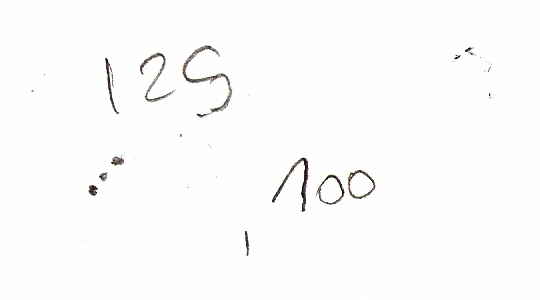 125
100